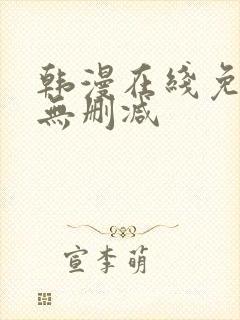 韩漫在线免
無删减
宣李萌